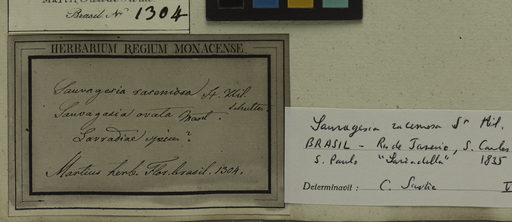 Brasil. Nº 1304
HERBARIUM REGIUM MONACENSE.
Sauvagesia racemosa St. Hil.
Sauvagesia ovata Brasil.
Lavradiae species?
Martius herb. Flor. brasil. 1304.
Sauvagesia racemosa St Hil.
BRASIL - Rio de Janeiro, S. Carlos
S. Paulo 1835
Determinavit: C. Sastre